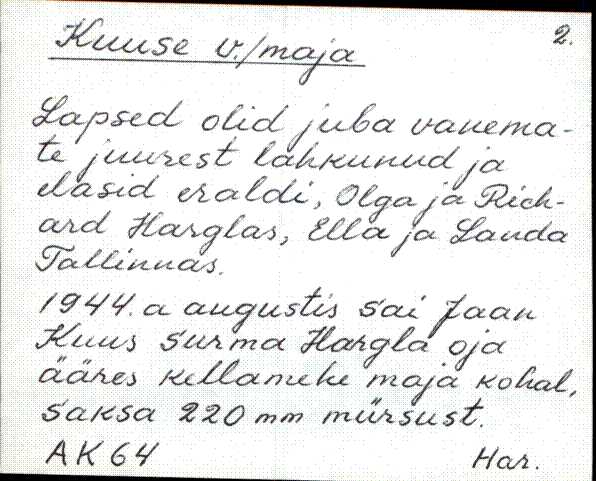 Kuuse v./maja 2.
Lapsed olid juba vanema-
te juurest lahkunud ja
elasid eraldi, Olga ja Rich-
ard Harglas, Ella ja Landa
Tallinnas.
1944.a augustis sai Jaan
Kuus surma Hargla oja
ääres kellamehe maja kohal,
saksa 220 mm mürsust.
AK 64 Har.